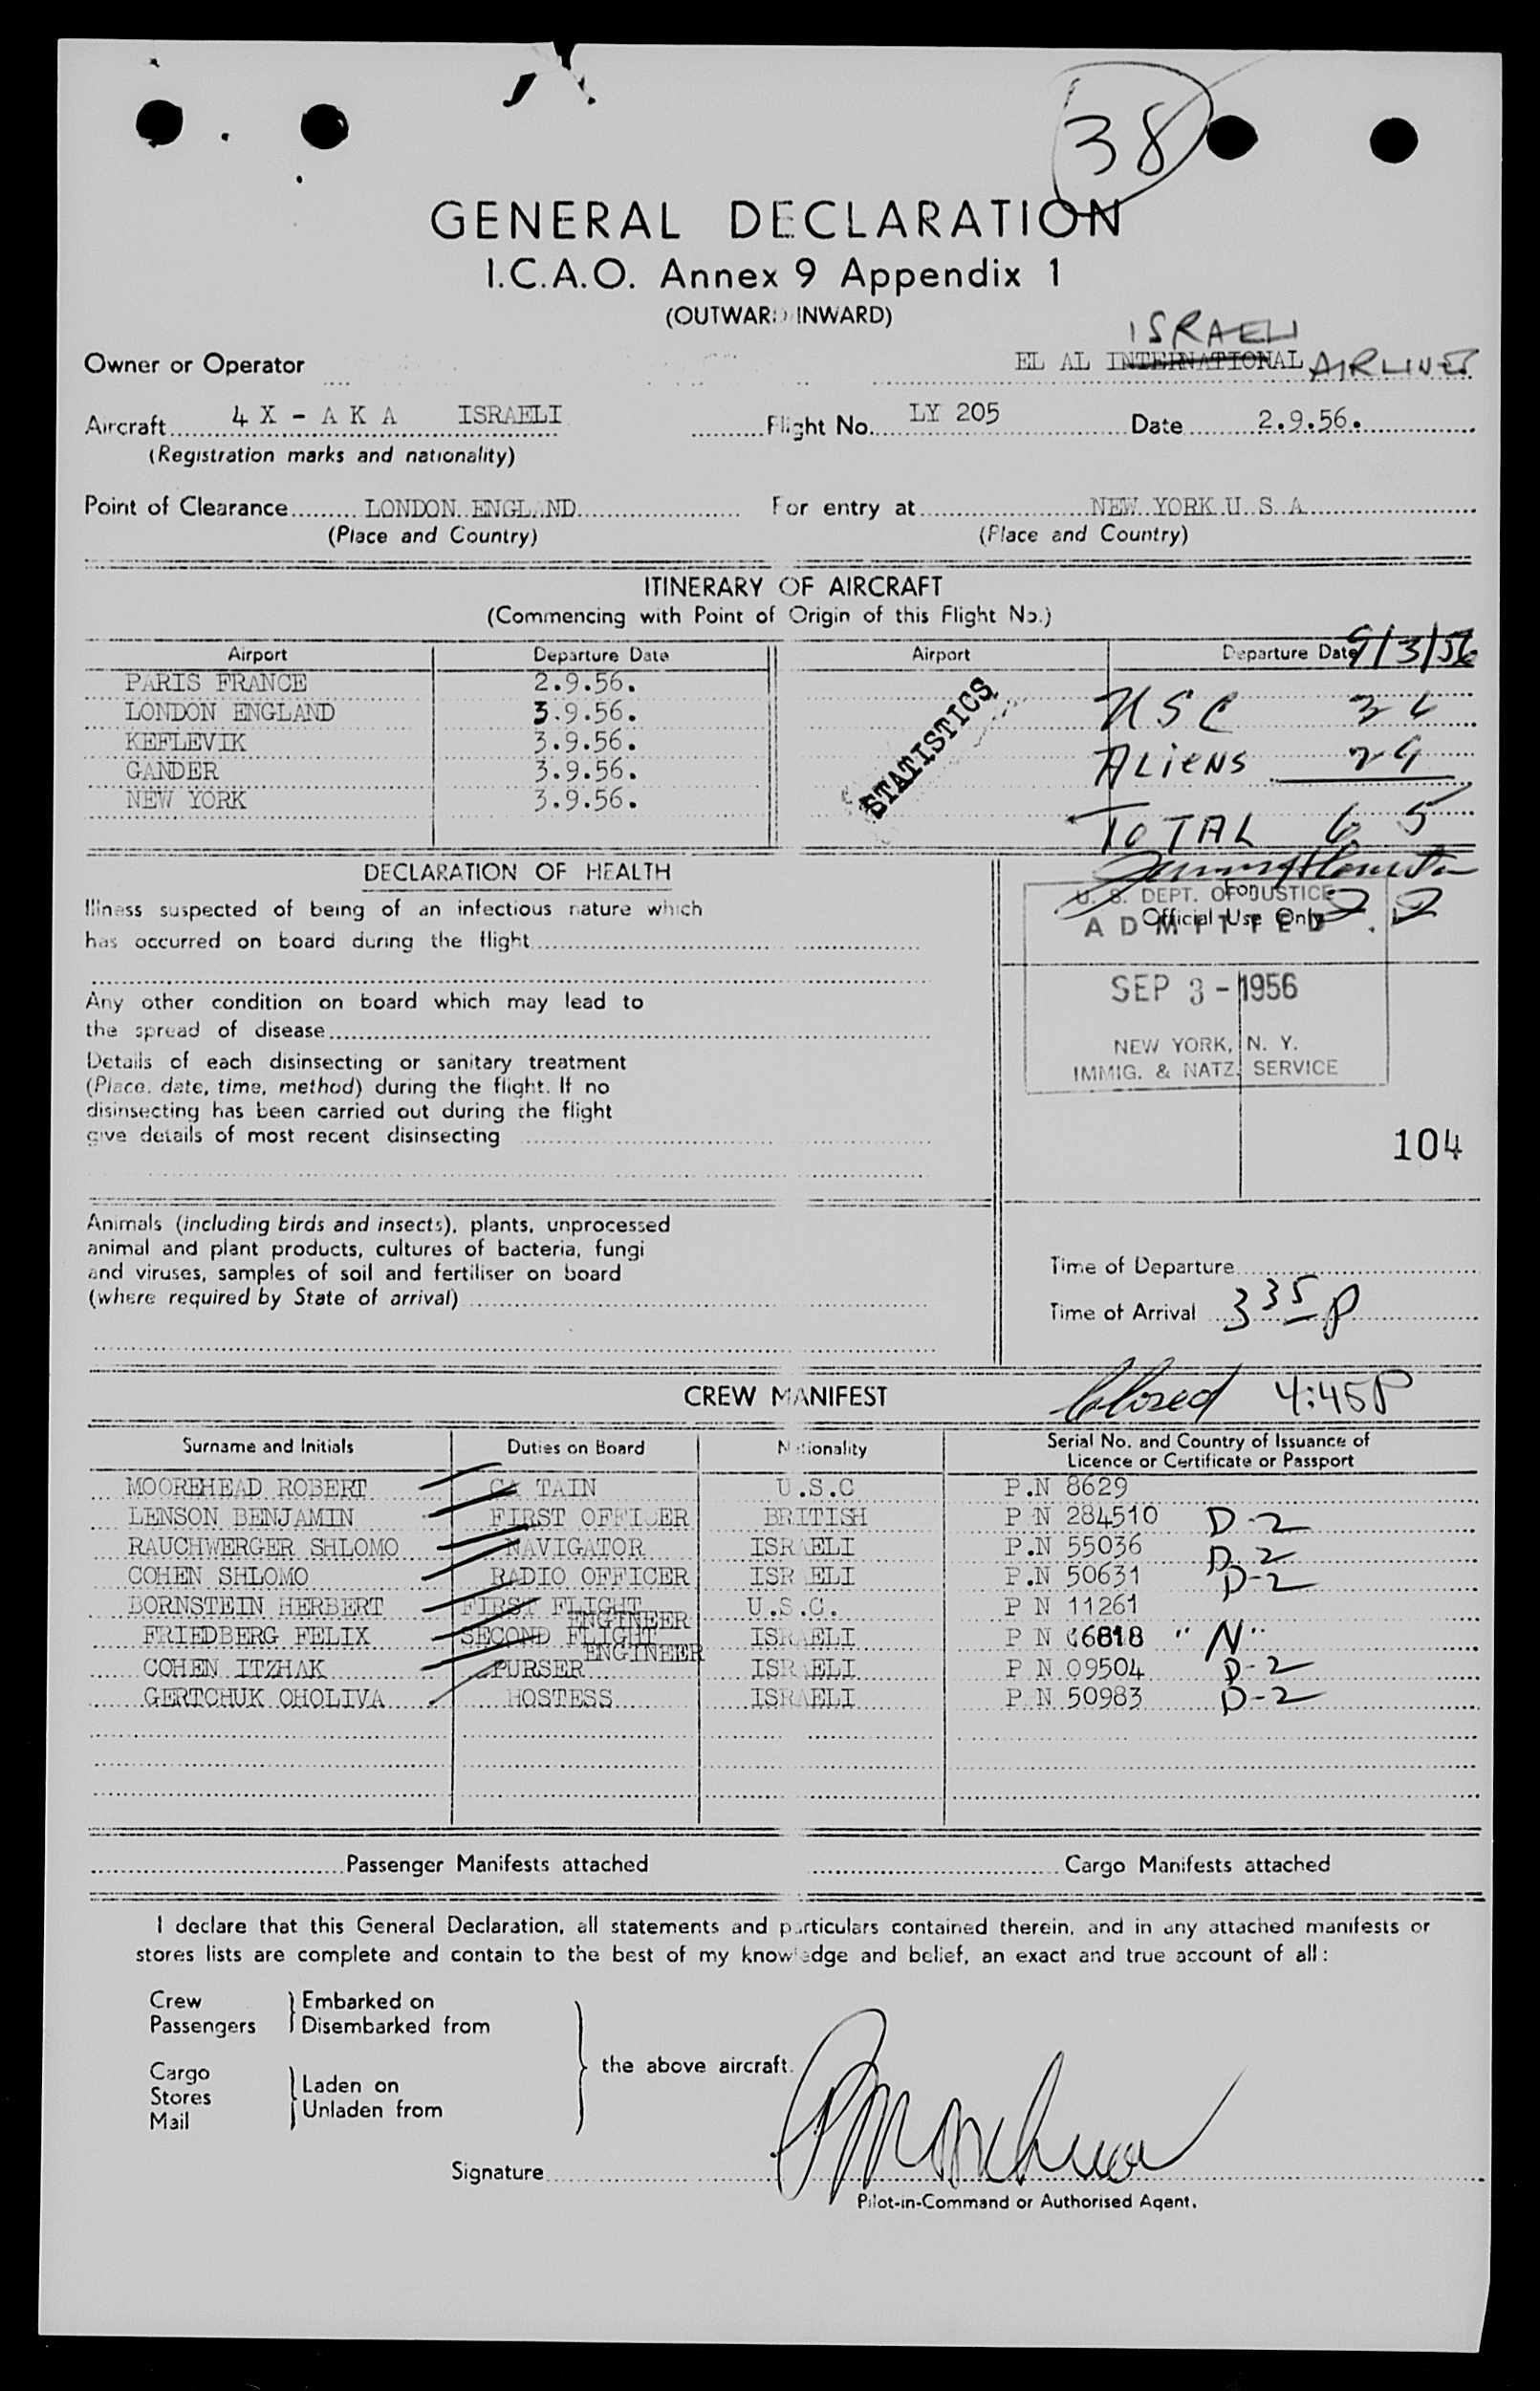 38
GENERAL DECLARATION
I.C.A.O. Annex 9 Appendix 1
(OUTWARD INWARD)
ISRAELI
Owner or Operator EL AL INTERNATIONAL AIRLINES
Aircraft 4 X - A K A ISRAELI Flight No. LY 205 Date 2.9.56.
(Registration marks and nationality)
Point of Clearance LONDON ENGLAND For entry at NEW YORK U. S. A.
(Place and Country) (Place and Country)
ITINERARY OF AIRCRAFT
(Commencing with Point of Origin of this Flight No.)
Airport Departure Date Airport Departure Date 9/3/56
PARIS FRANCE 2.9.56.
LONDON ENGLAND 3.9.56. USC
KEFLEVIK 3.9.56.
GANDER 3.9.56. ALIENS 29
NEW YORK 3.9.56.
STATISTICS
TOTAL 65
DECLARATION OF HEALTH
Illness suspected of being of an infectious nature which
has occurred on board during the flight
Any other condition on board which may lead to
the spread of disease
Details of each disinsecting or sanitary treatment
(Place, date, time, method) during the flight. If no
disinsecting has been carried out during the flight
give details of most recent disinsecting
For
Official Use Only
U. S. DEPT. OF JUSTICE
ADMITTED
SEP 3 - 1956
NEW YORK, N. Y.
IMMIG. & NATZ. SERVICE
104
Animals (including birds and insects), plants, unprocessed
animal and plant products, cultures of bacteria, fungi
and viruses, samples of soil and fertiliser on board
(where required by State of arrival)
Time of Departure
Time of Arrival 3 35 P
CREW MANIFEST Closed 4:45P
Surname and Initials Duties on Board Nationality Serial No. and Country of Issuance of
Licence or Certificate or Passport
MOOREHEAD ROBERT CA TAIN U.S.C P.N 8629
LENSON BENJAMIN FIRST OFFICER BRITISH P N 284510 D-2
RAUCHWERGER SHLOMO NAVIGATOR ISRAELI P.N 55036 D-2
COHEN SHLOMO RADIO OFFICER ISRAELI P.N 50631 D-2
BORNSTEIN HERBERT FIRST FLIGHT ENGINEER U.S.C. P N 11261
FRIEDBERG FELIX SECOND FLIGHT ENGINEER ISRAELI P N 66818 "N"
COHEN ITZHAK PURSER ISRAELI P N 09504 D-2
GERTCHUK OHOLIVA HOSTESS ISRAELI P N 50983 D-2
Passenger Manifests attached Cargo Manifests attached
I declare that this General Declaration, all statements and particulars contained therein, and in any attached manifests or
stores lists are complete and contain to the best of my knowledge and belief, an exact and true account of all:
Crew Embarked on
Passengers Disembarked from
the above aircraft.
Cargo
Stores Laden on
Mail Unladen from
Signature
Pilot-in-Command or Authorised Agent.